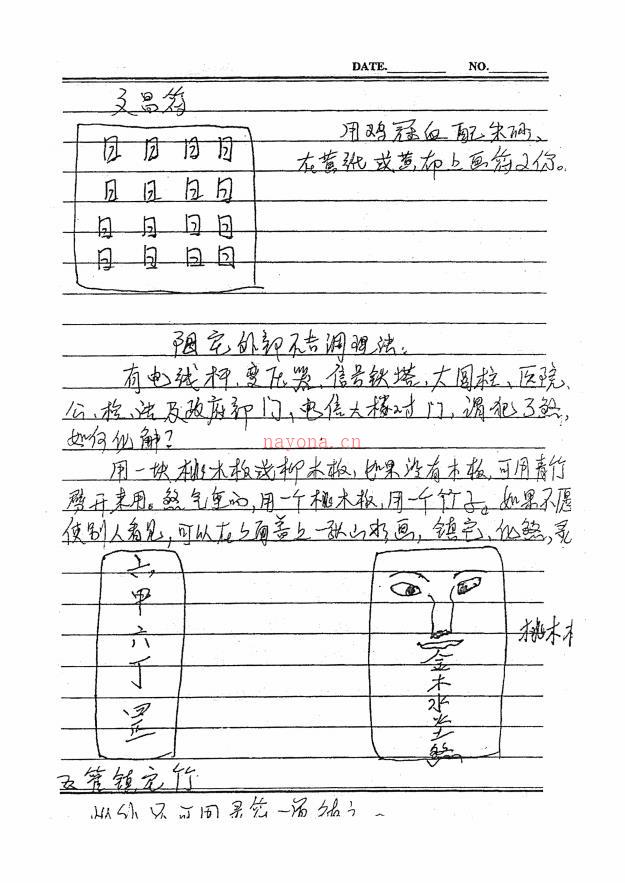 DATE. NO.
文昌符
日 日 日 日
日 日 日 日
日 日 日 日
日 日 日 日
用鸡冠血配朱砂、
在黄纸或黄布上画符
阳宅外部不吉调理法:
有电线杆、变压器、信号铁塔、大圆柱、医院、
公、检、法及政府部门、电信大楼对门,谓犯了煞,
如何化解?
用一块桃木板或柳木板,如果没有木板,可用青竹
劈开来用。煞气重的,用一个桃木板,用一个竹子。如果不愿
使别人看见,可以在上面盖上一张山水画,镇宅,化煞,灵
六甲六丁罡
金木水火土煞
桃木
五营镇宅竹
nayona.cn